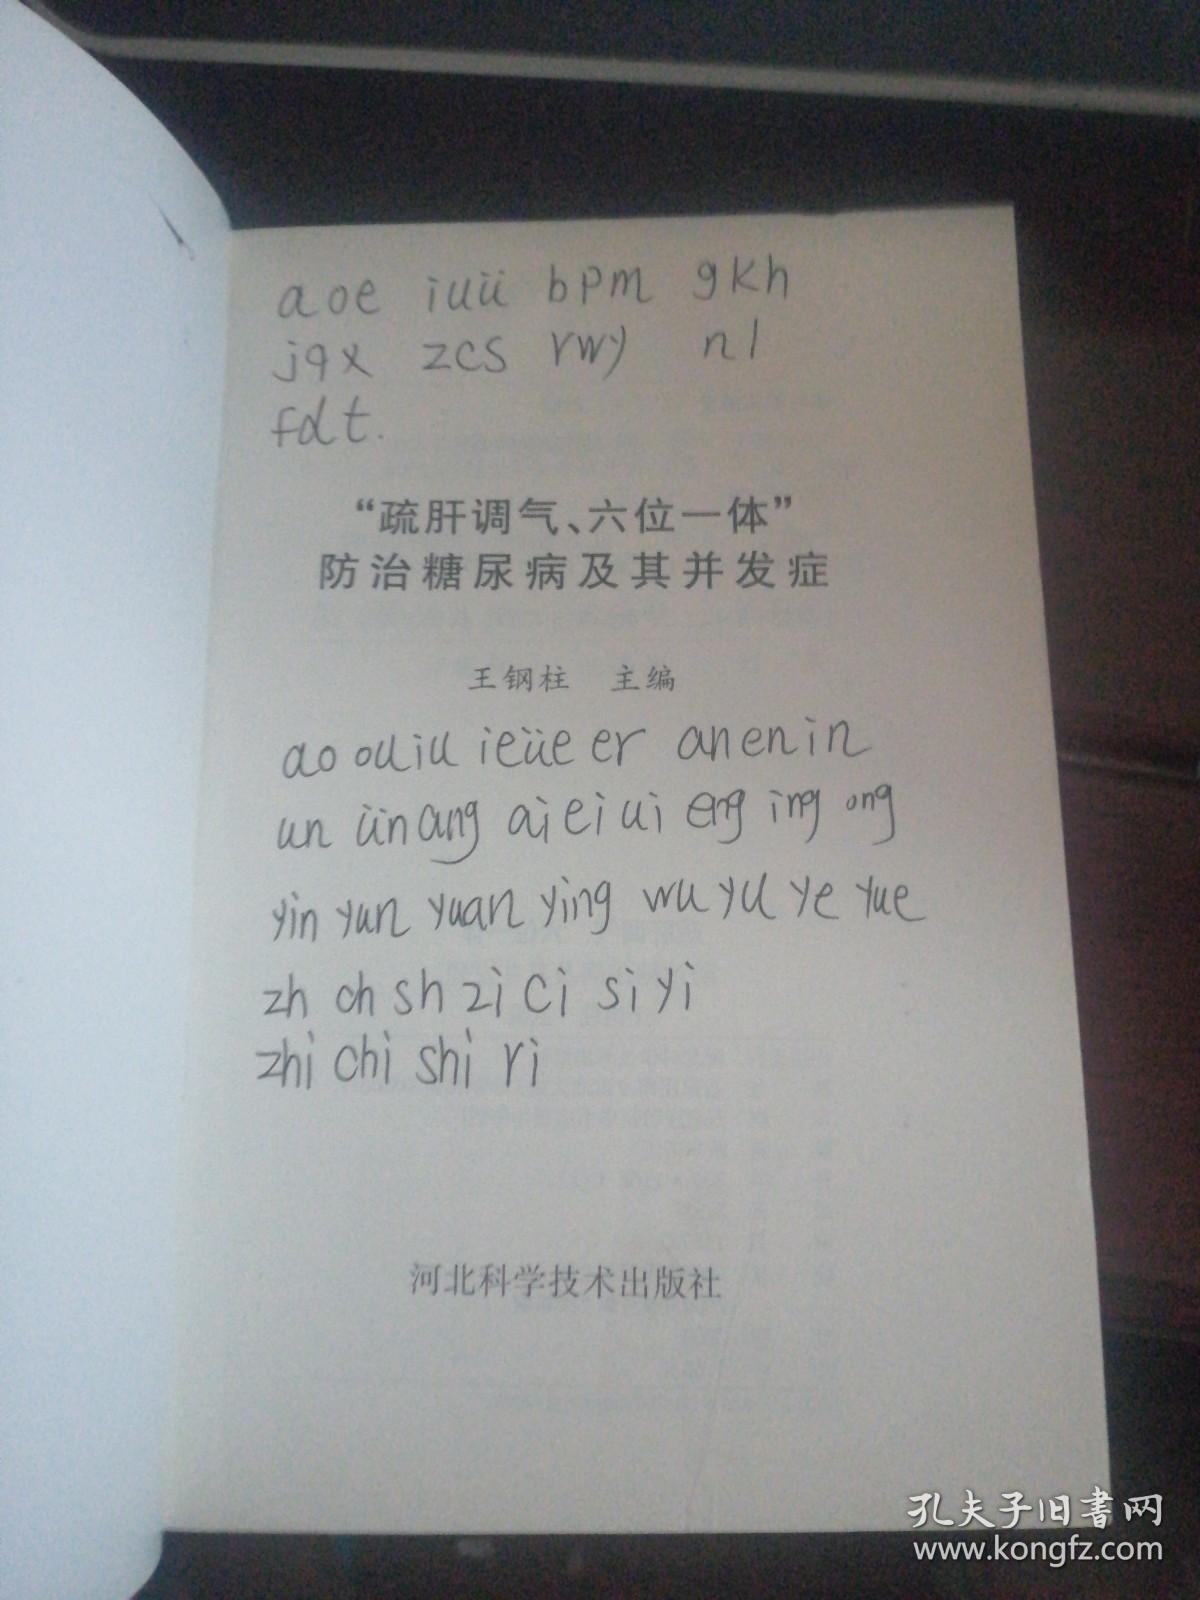 aoe iuü bpm gkh
jqx zcs rwy nl
fdt.
“疏肝调气、六位一体”
防治糖尿病及其并发症
王钢柱 主编
ao ou iu ie üe er an en in
un ün ang ai ei ui eng ing ong
yin yun yuan ying wu yu ye yue
zh ch sh zi ci si yi
zhi chi shi ri
河北科学技术出版社
孔夫子旧书网
www.kongfz.com